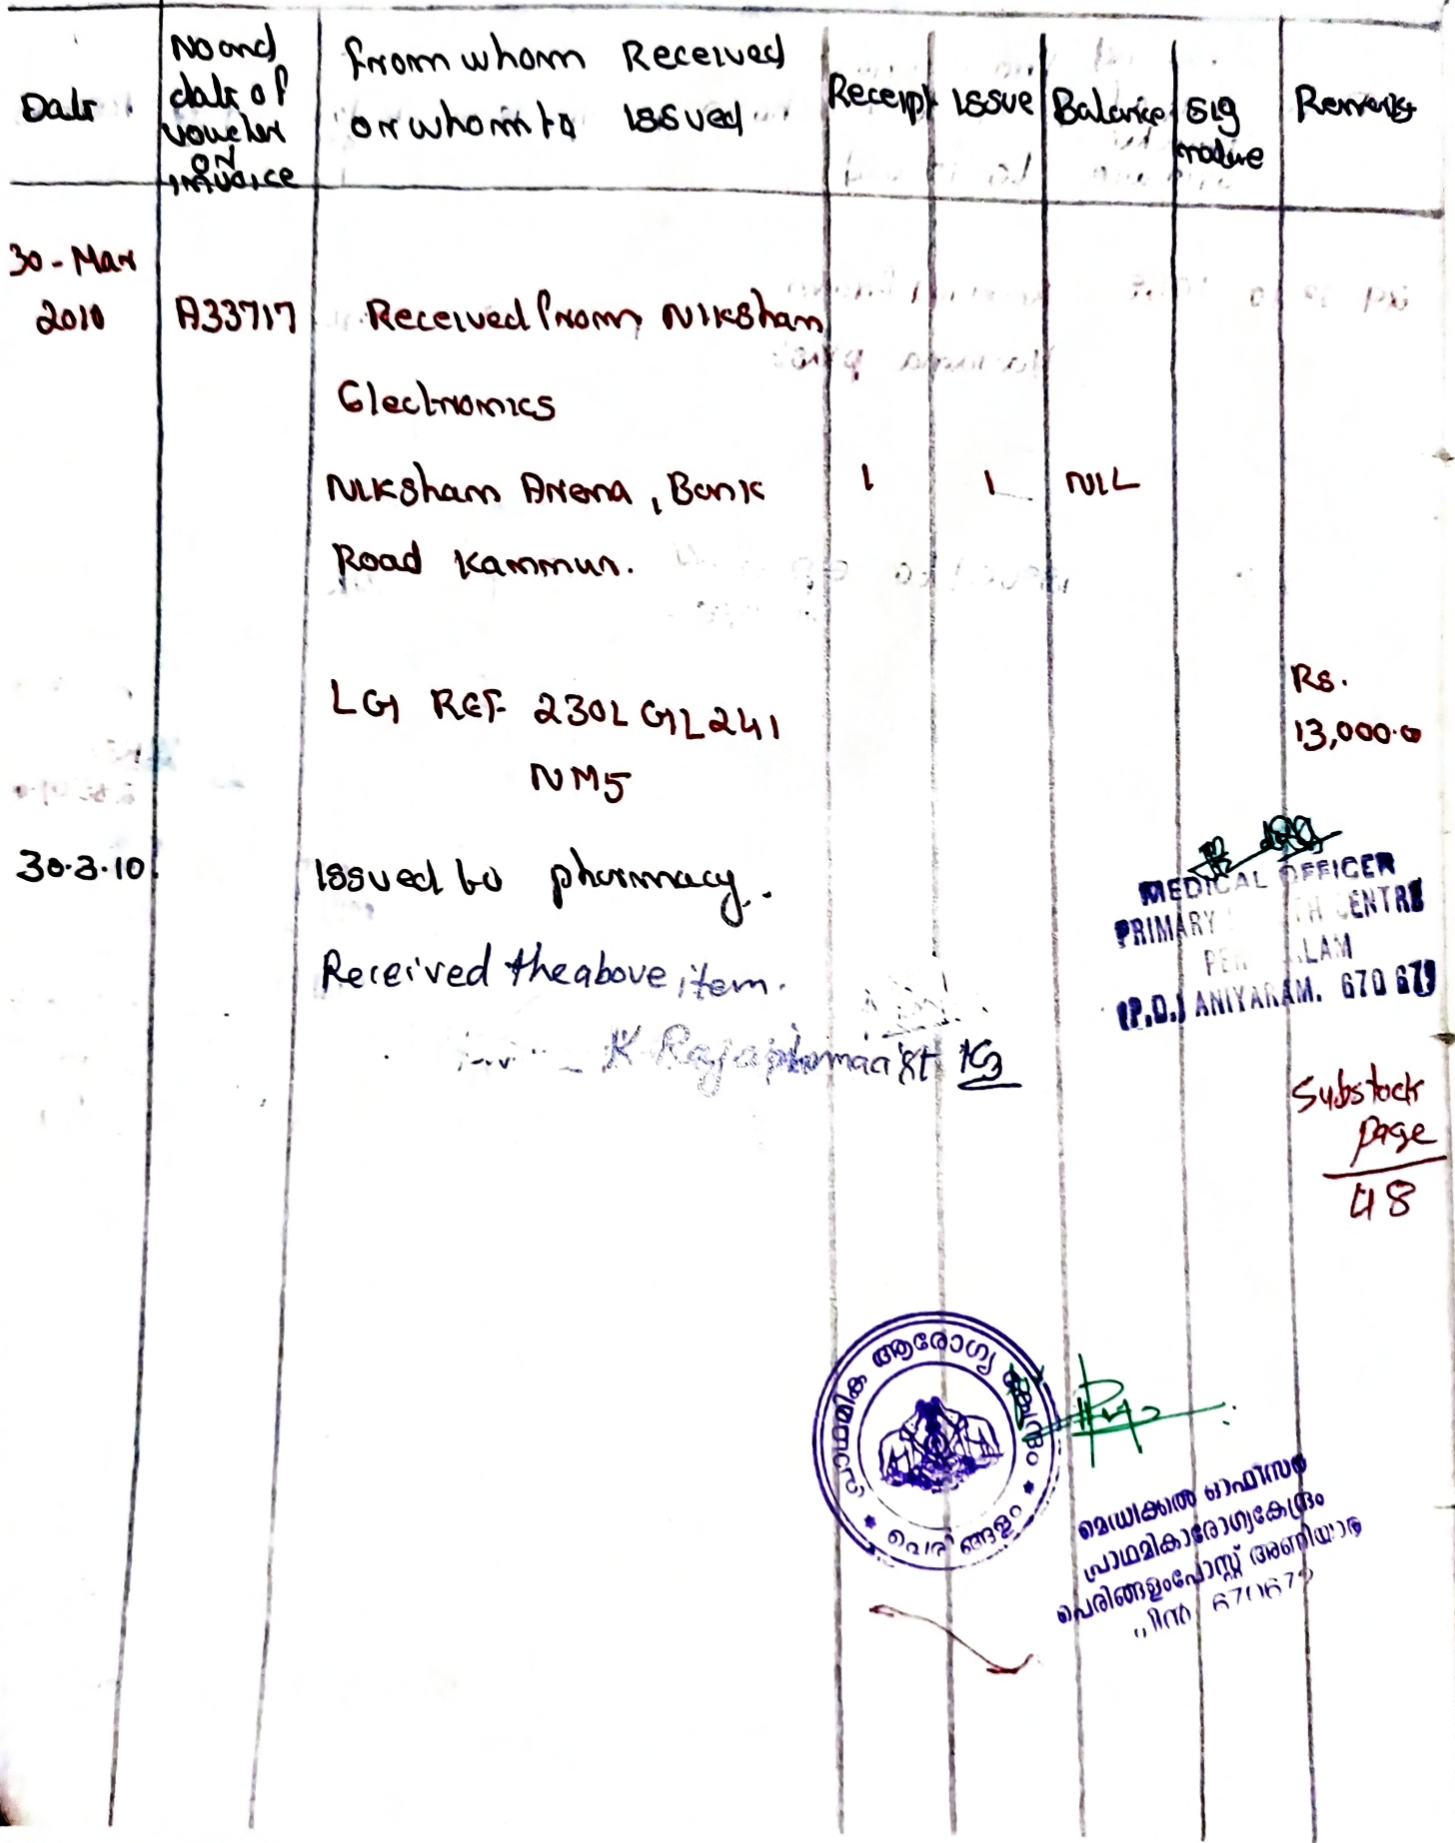 Date
No and
date of
voucher
or
invoice
from whom Received
or whom to issued
Receipt
issue
Balance
sig
nature
Remarks
30-Mar
2010
A33717
Received from Niksham
Electronics
Niksham Arena, Bank
1
1
NIL
Road Kannur.
LG REF 230L GL241
NM5
Rs.
13,000.0
30.3.10
Issued to pharmacy.
MEDICAL OFFICER
PRIMARY CENTRE
(P.O.) ANIYARAM. 670 67
Received the above item.
K Raja
Substock
page
48
പ്രാഥമിക ആരോഗ്യ കേന്ദ്രം
പെരിങ്ങളം
മെഡിക്കൽ ഓഫീസർ
പ്രാഥമികാരോഗ്യകേന്ദ്രം
പെരിങ്ങളംപോസ്റ്റ് അണിയാരം
670672